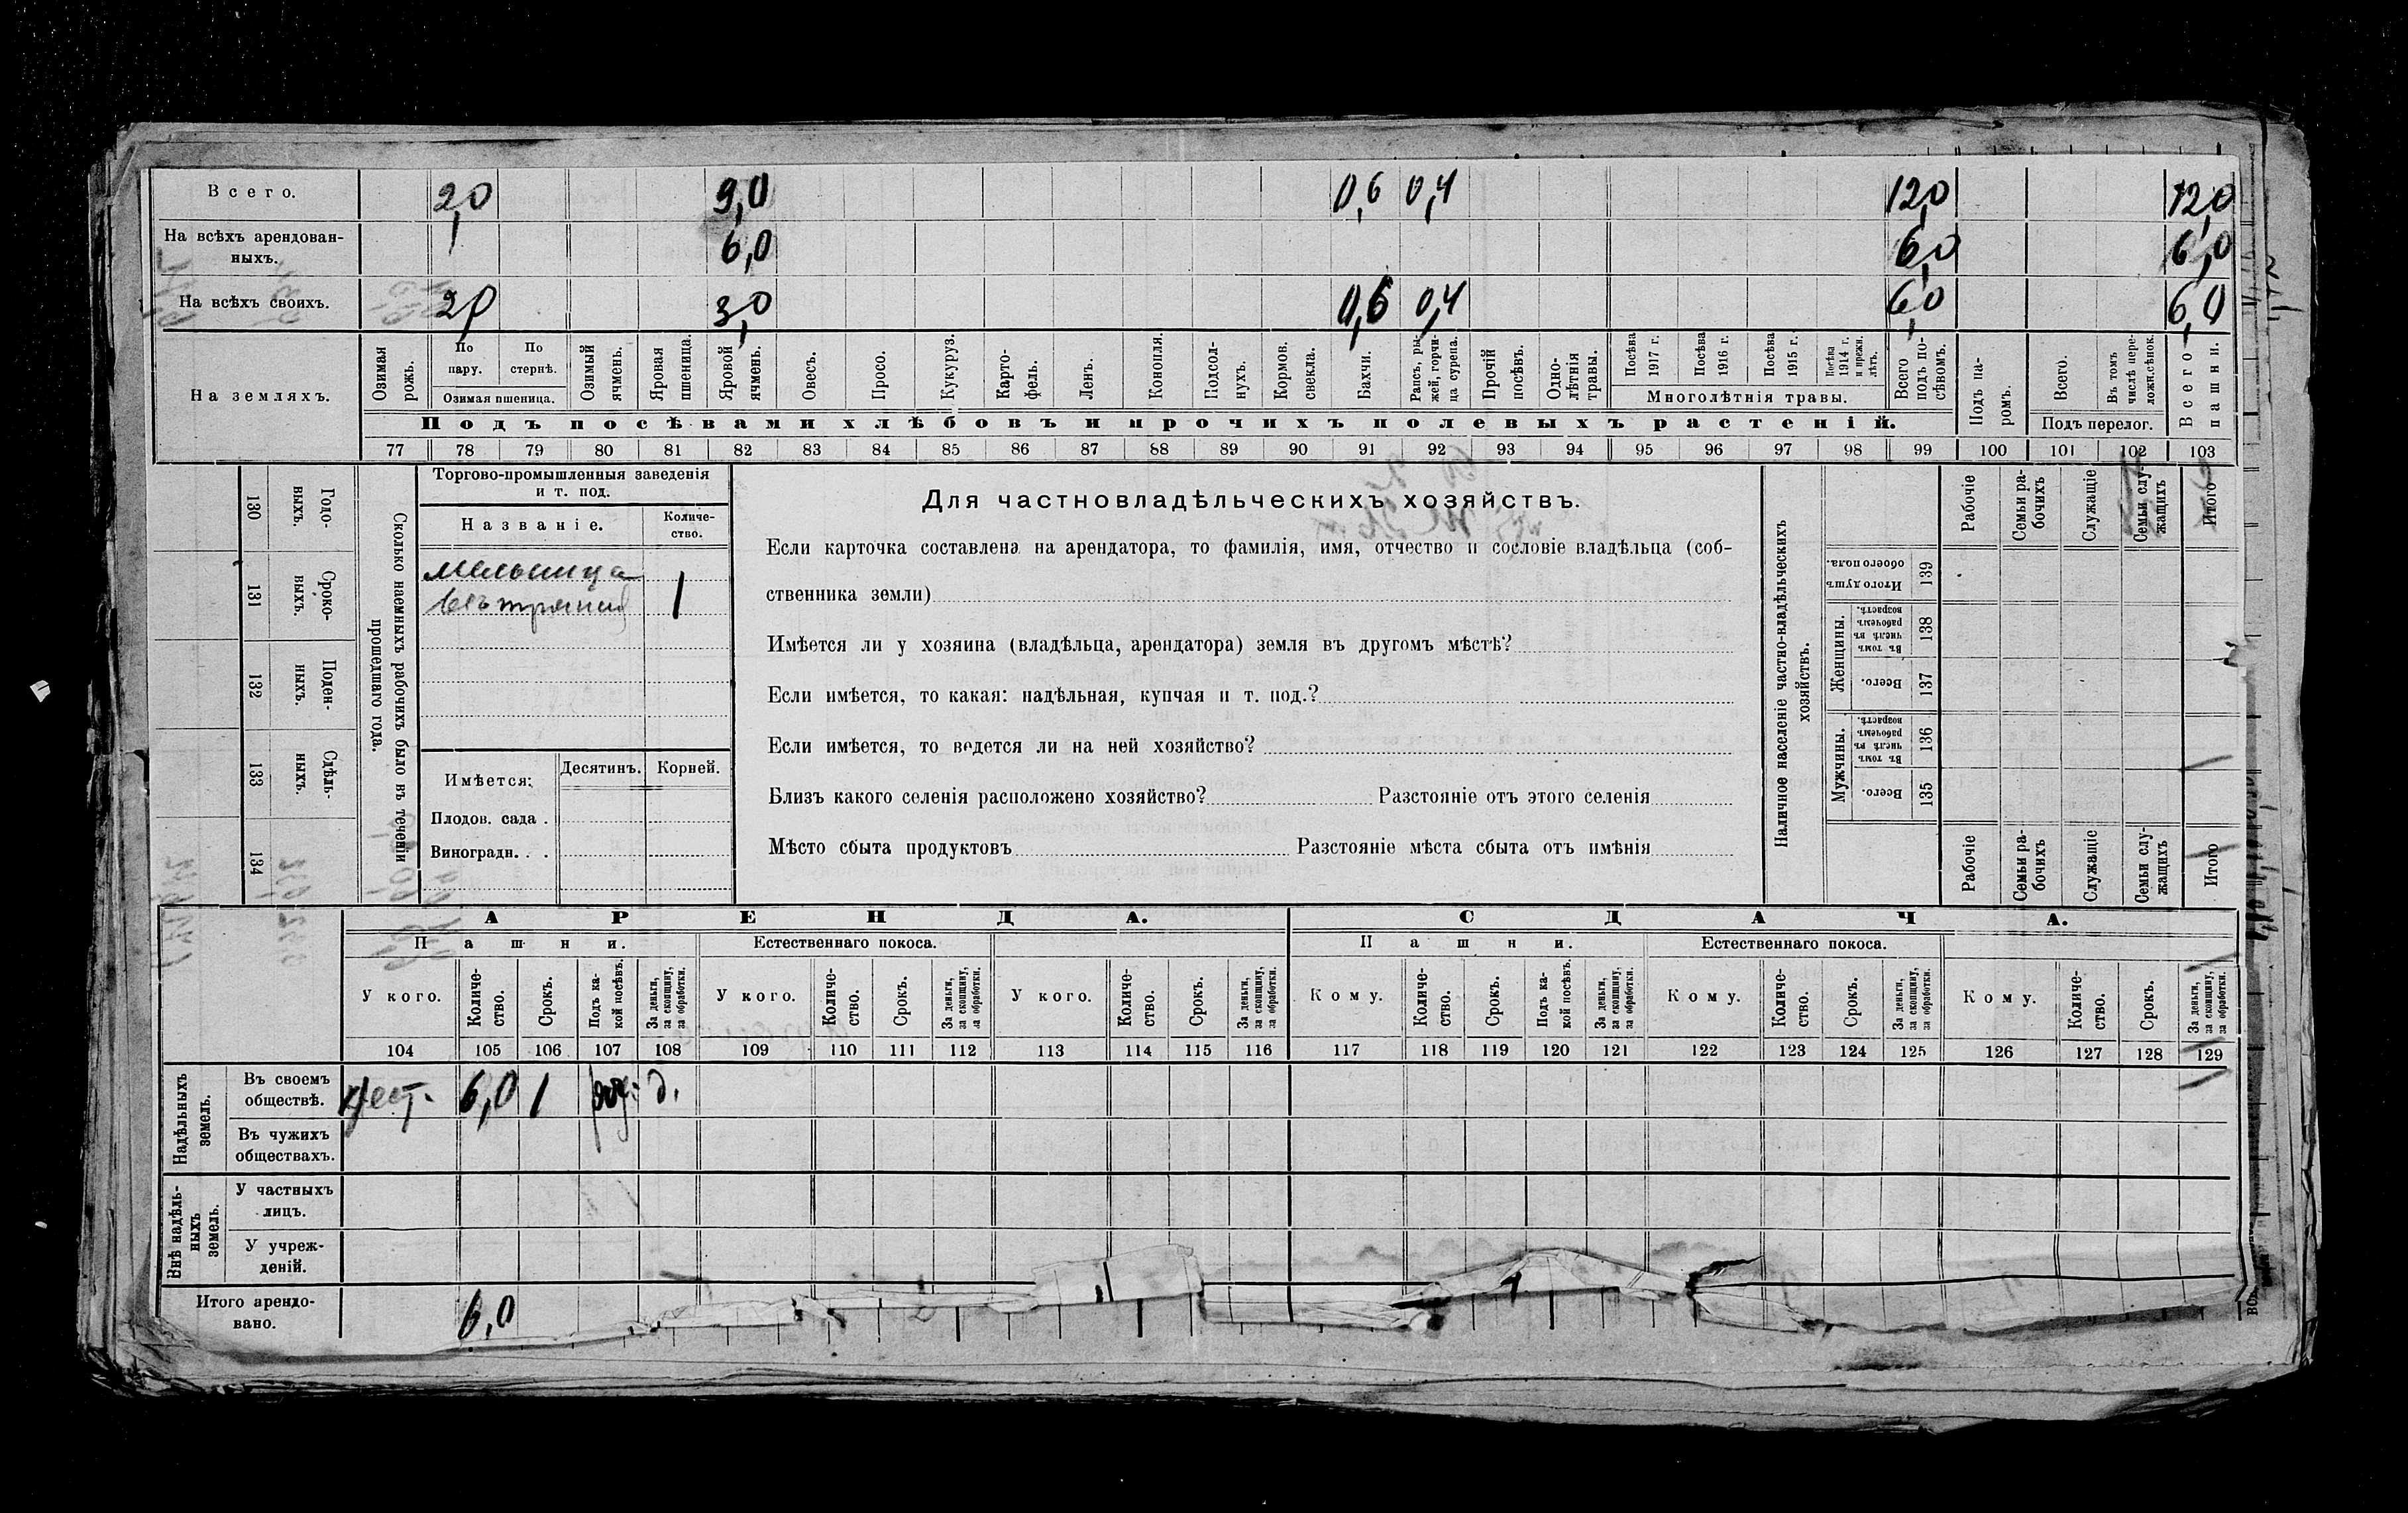 Всего. 2,0 9,0 0,6 0,4 12,0 12,0
На всѣхъ арендован-
ныхъ. 6,0 6,0 6,0
На всѣхъ своихъ. 2,0 3,0 0,6 0,4 6,0 6,0
На земляхъ.
Озимая рожь.
По пару.
По стернѣ.
Озимая пшеница.
Озимый ячмень.
Яровая пшеница.
Яровой ячмень.
Овесъ.
Просо.
Кукуруз.
Карто-
фель.
Ленъ.
Конопля.
Подсол-
нухъ.
Кормов.
свекла.
Бахчи.
Рапсъ, ры-
жей, горчи-
ца сурепа.
Прочій
посѣвъ.
Одно-
лѣтнія
травы.
Посѣва
1917 г.
Посѣва
1916 г.
Посѣва
1915 г.
Посѣва
1914 г.
и прежн.
лѣтъ.
Многолѣтнія травы.
Всего
подъ по-
сѣвомъ.
Подъ па-
ромъ.
Всего.
Въ томъ
числѣ пере-
ложн.сѣнок.
Подъ перелог.
Всего
пашни.
Подъ посѣвами хлѣбовъ и прочихъ полевыхъ растеній.
77 78 79 80 81 82 83 84 85 86 87 88 89 90 91 92 93 94 95 96 97 98 99 100 101 102 103
Сколько наемныхъ рабочихъ было въ теченіи
прошедшаго года.
Годо-
выхъ.
130
Сроко-
выхъ.
131
Поден-
ныхъ.
132
Сдѣль-
ныхъ.
133
134
Торгово-промышленныя заведенія
и т. под.
Названіе.
Количе-
ство.
мельница
вѣтряная 1
Имѣется:
Десятинъ.
Корней.
Плодов. сада .
Виноградн. . .
Для частновладѣльческихъ хозяйствъ.
Если карточка составлена на арендатора, то фамилія, имя, отчество и сословіе владѣльца (соб-
ственника земли)
Имѣется ли у хозяина (владѣльца, арендатора) земля въ другомъ мѣстѣ?
Если имѣется, то какая: надѣльная, купчая и т. под.?
Если имѣется, то ведется ли на ней хозяйство?
Близъ какого селенія расположено хозяйство? Разстояніе отъ этого селенія
Мѣсто сбыта продуктовъ Разстояніе мѣста сбыта отъ имѣнія
Наличное населеніе частно-владѣльческихъ
хозяйствъ.
Рабочіе
Семьи ра-
бочихъ
Служащіе
Семьи слу-
жащихъ
Итого
Итого душъ
обоего пола.
139
Женщины.
Въ томъ
числѣ въ
рабочемъ
возрастѣ.
138
Всего.
137
Мужчины.
Въ томъ
числѣ въ
рабочемъ
возрастѣ.
136
Всего.
135
Рабочіе
Семьи ра-
бочихъ
Служащіе
Семьи слу-
жащихъ
Итого
АРЕНДА. СДАЧА.
Пашни. Естественнаго покоса. Пашни. Естественнаго покоса.
У кого.
Количе-
ство.
Срокъ.
Подъ ка-
кой посѣвъ.
За деньги,
за скопщину,
за обработки.
У кого.
Количе-
ство.
Срокъ.
За деньги,
за скопщину,
за обработки.
У кого.
Количе-
ство.
Срокъ.
За деньги,
за скопщину,
за обработки.
Кому.
Количе-
ство.
Срокъ.
Подъ ка-
кой посѣвъ.
За деньги,
за скопщину,
за обработки.
Кому.
Количе-
ство.
Срокъ.
За деньги,
за скопщину,
за обработки.
Кому.
Количе-
ство.
Срокъ.
За деньги,
за скопщину,
за обработки.
104 105 106 107 108 109 110 111 112 113 114 115 116 117 118 119 120 121 122 123 124 125 126 127 128 129
Надѣльныхъ
земель.
Въ своемъ
обществѣ. крест. 6,0 1 д.
Въ чужихъ
обществахъ.
Внѣ надѣль-
ныхъ
земель.
У частныхъ
лицъ.
У учреж-
деній.
Итого арендо-
вано. 6,0